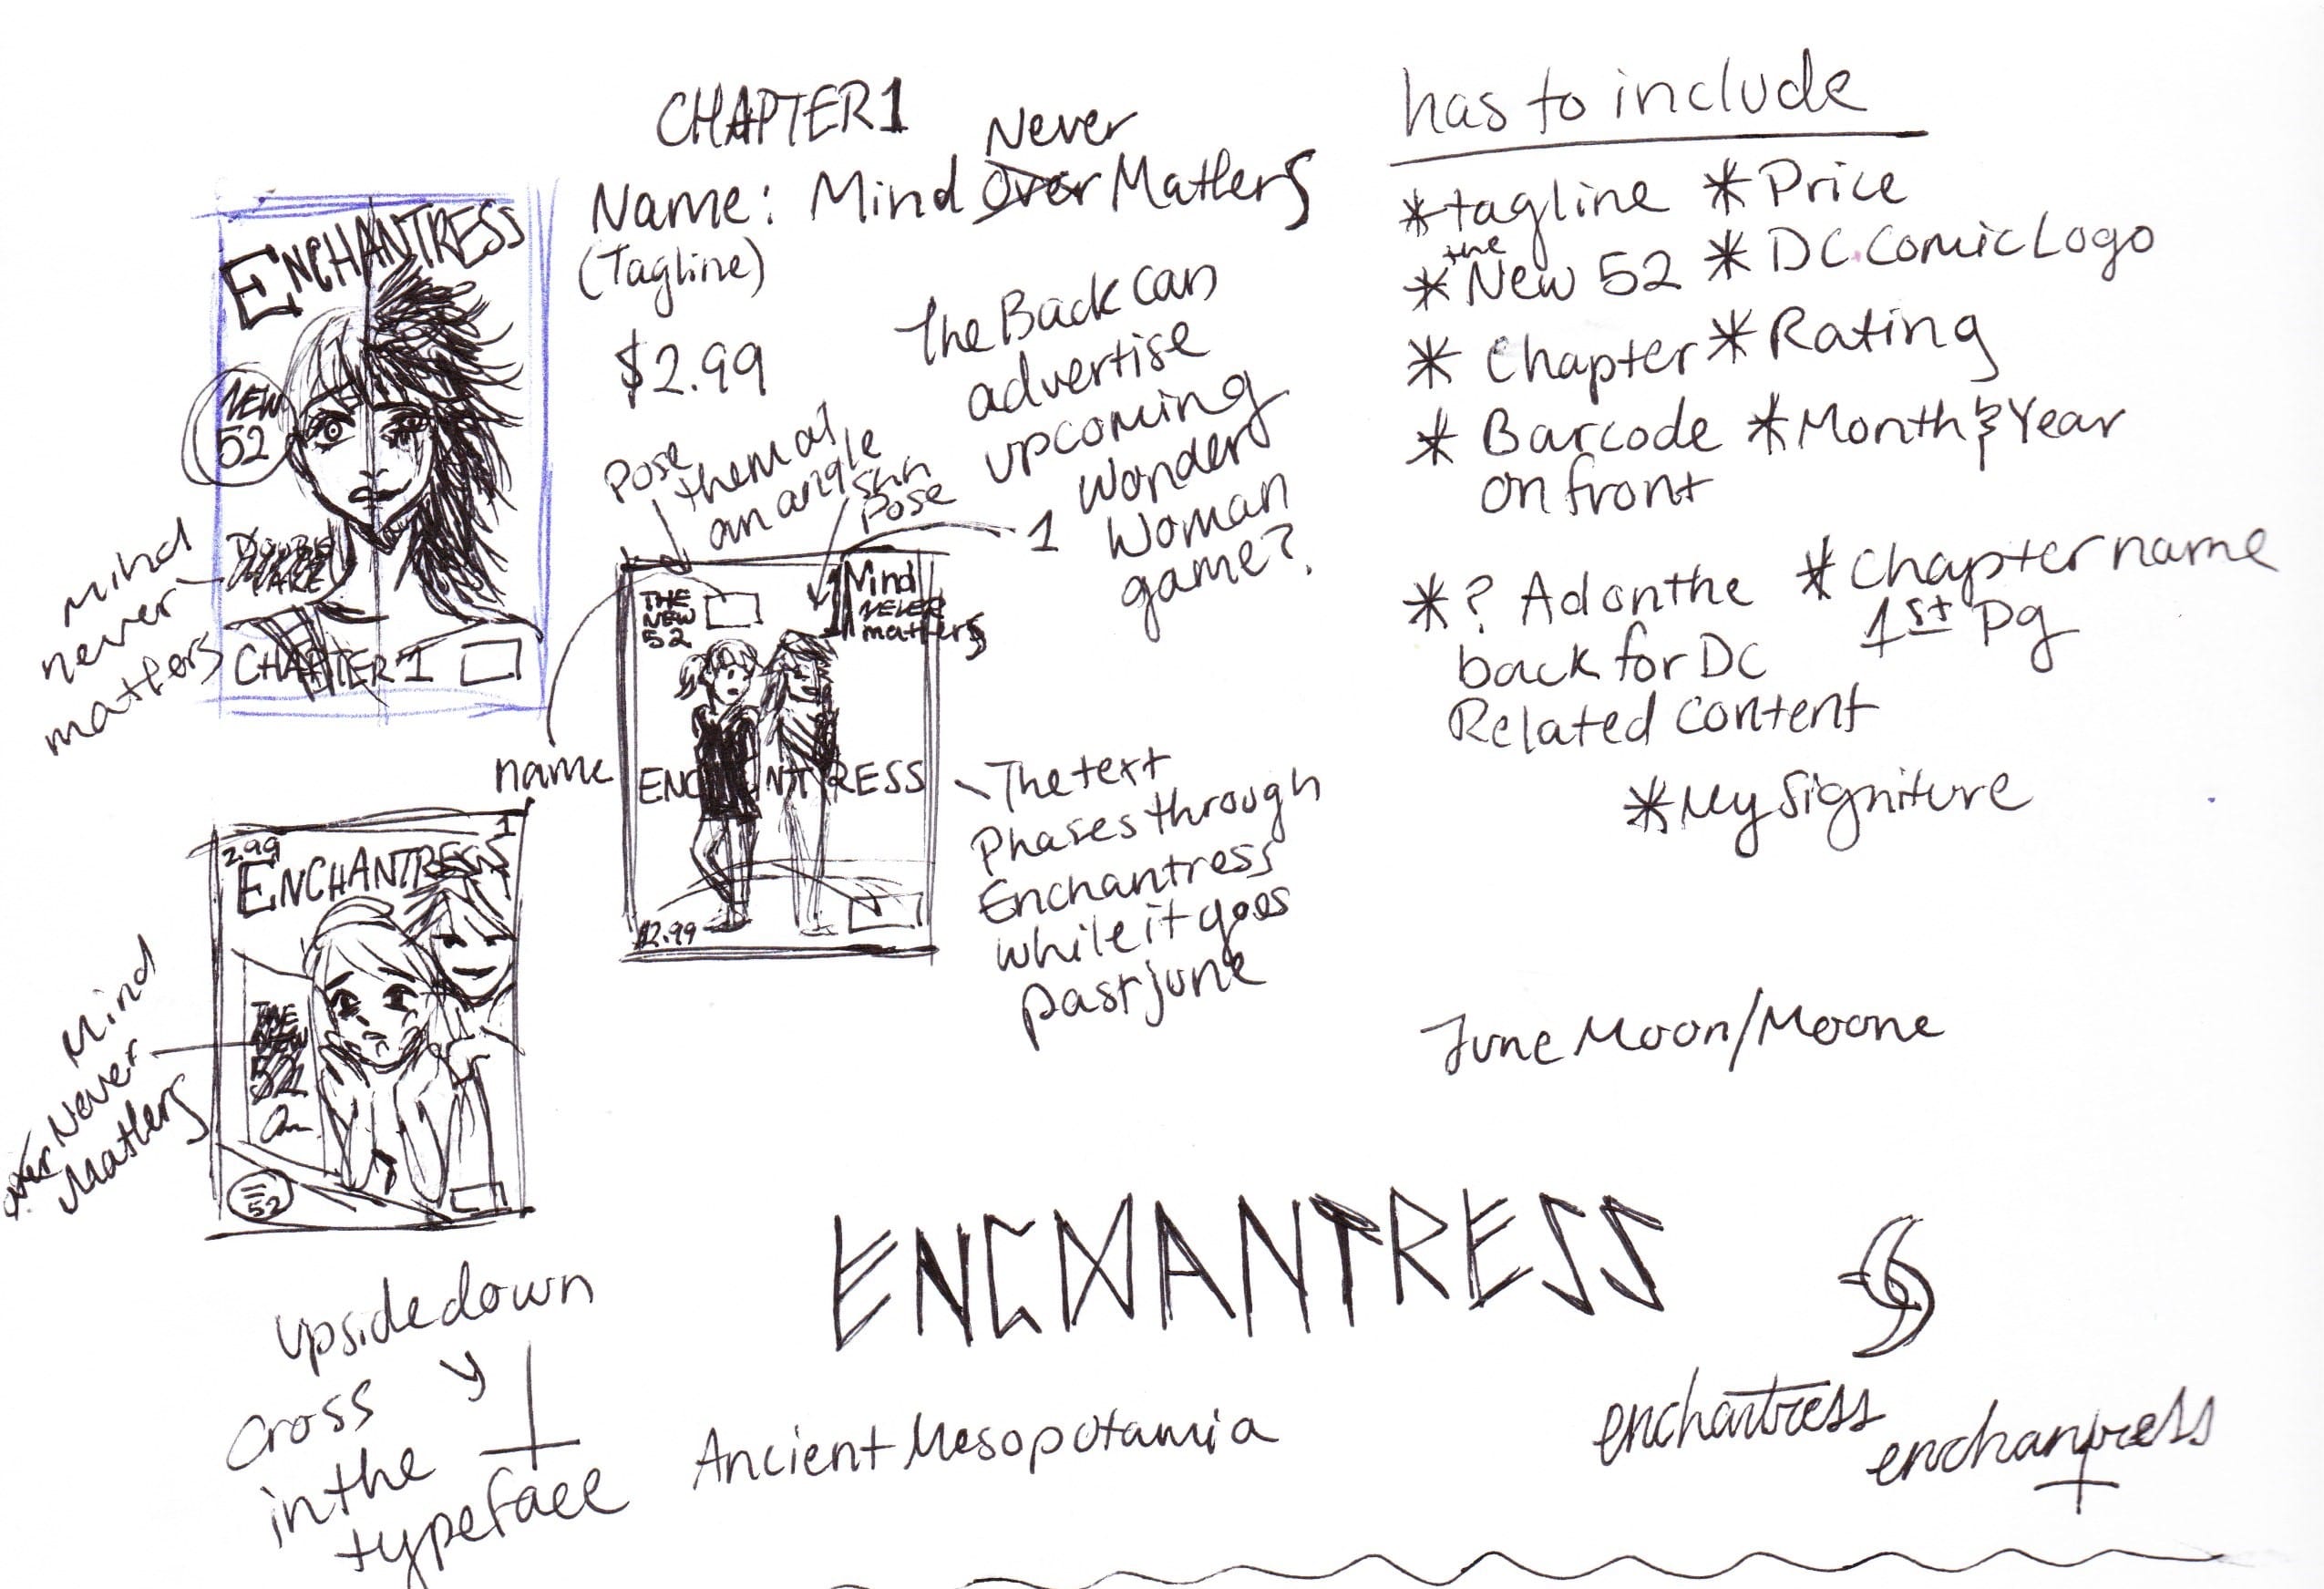 CHAPTER 1
Never
Name: Mind Over Matters
(Tagline)
$2.99
The Back can
advertise
upcoming
Wonder
Woman
game?
has to include
*tagline *Price
*the New 52 *DC Comic Logo
* Chapter *Rating
* Barcode *Month & Year
on front
*? Ad on the
back for DC
Related content
*Chapter name
1st pg
*My Signiture
ENCHANTRESS
NEW
52
CHAPTER 1
Mind
never
matters
Pose
them at
an angle
Pose
1
THE
NEW
52
1
Mind
NEVER
matters
ENC NT RESS
$2.99
name
The text
Phases through
Enchantress
while it goes
past june
2.99
1
ENCHANTRESS
THE
NEW
52
52
Mind
Never
Matters
June Moon/Moone
upside down
cross
in the
typeface
ENCHANTRESS
Ancient Mesopotamia
enchantress
enchantress